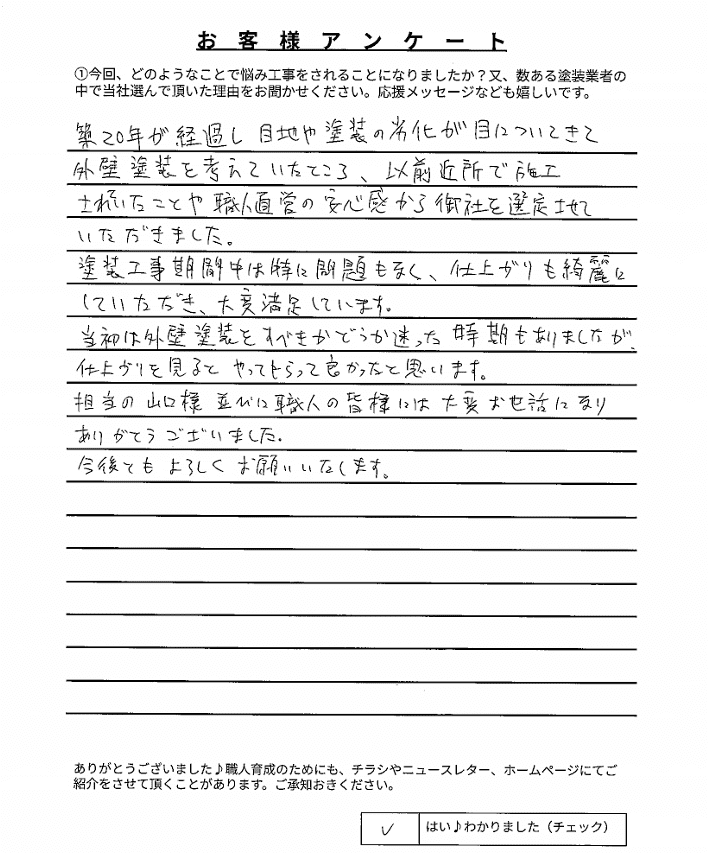 お客様アンケート
①今回、どのようなことで悩み工事をされることになりましたか？又、数ある塗装業者の
中で当社選んで頂いた理由をお聞かせください。応援メッセージなども嬉しいです。
築20年が経過し目地や塗装の劣化が目についてきて
外壁塗装を考えていたところ、以前近所で施工
されていたことや職人直営の安心感から御社を選定させて
いただきました。
塗装工事期間中は特に問題もなく、仕上がりも綺麗に
していただき、大変満足しています。
当初は外壁塗装をすべきかどうか迷った時期もありましたが、
仕上がりを見るとやってもらって良かったと思います。
担当の山口様並びに職人の皆様には大変お世話になり
ありがとうございました。
今後ともよろしくお願いいたします。
ありがとうございました♪職人育成のためにも、チラシやニュースレター、ホームページにてご
紹介をさせて頂くことがあります。ご承知おきください。
✓ はい♪わかりました（チェック）